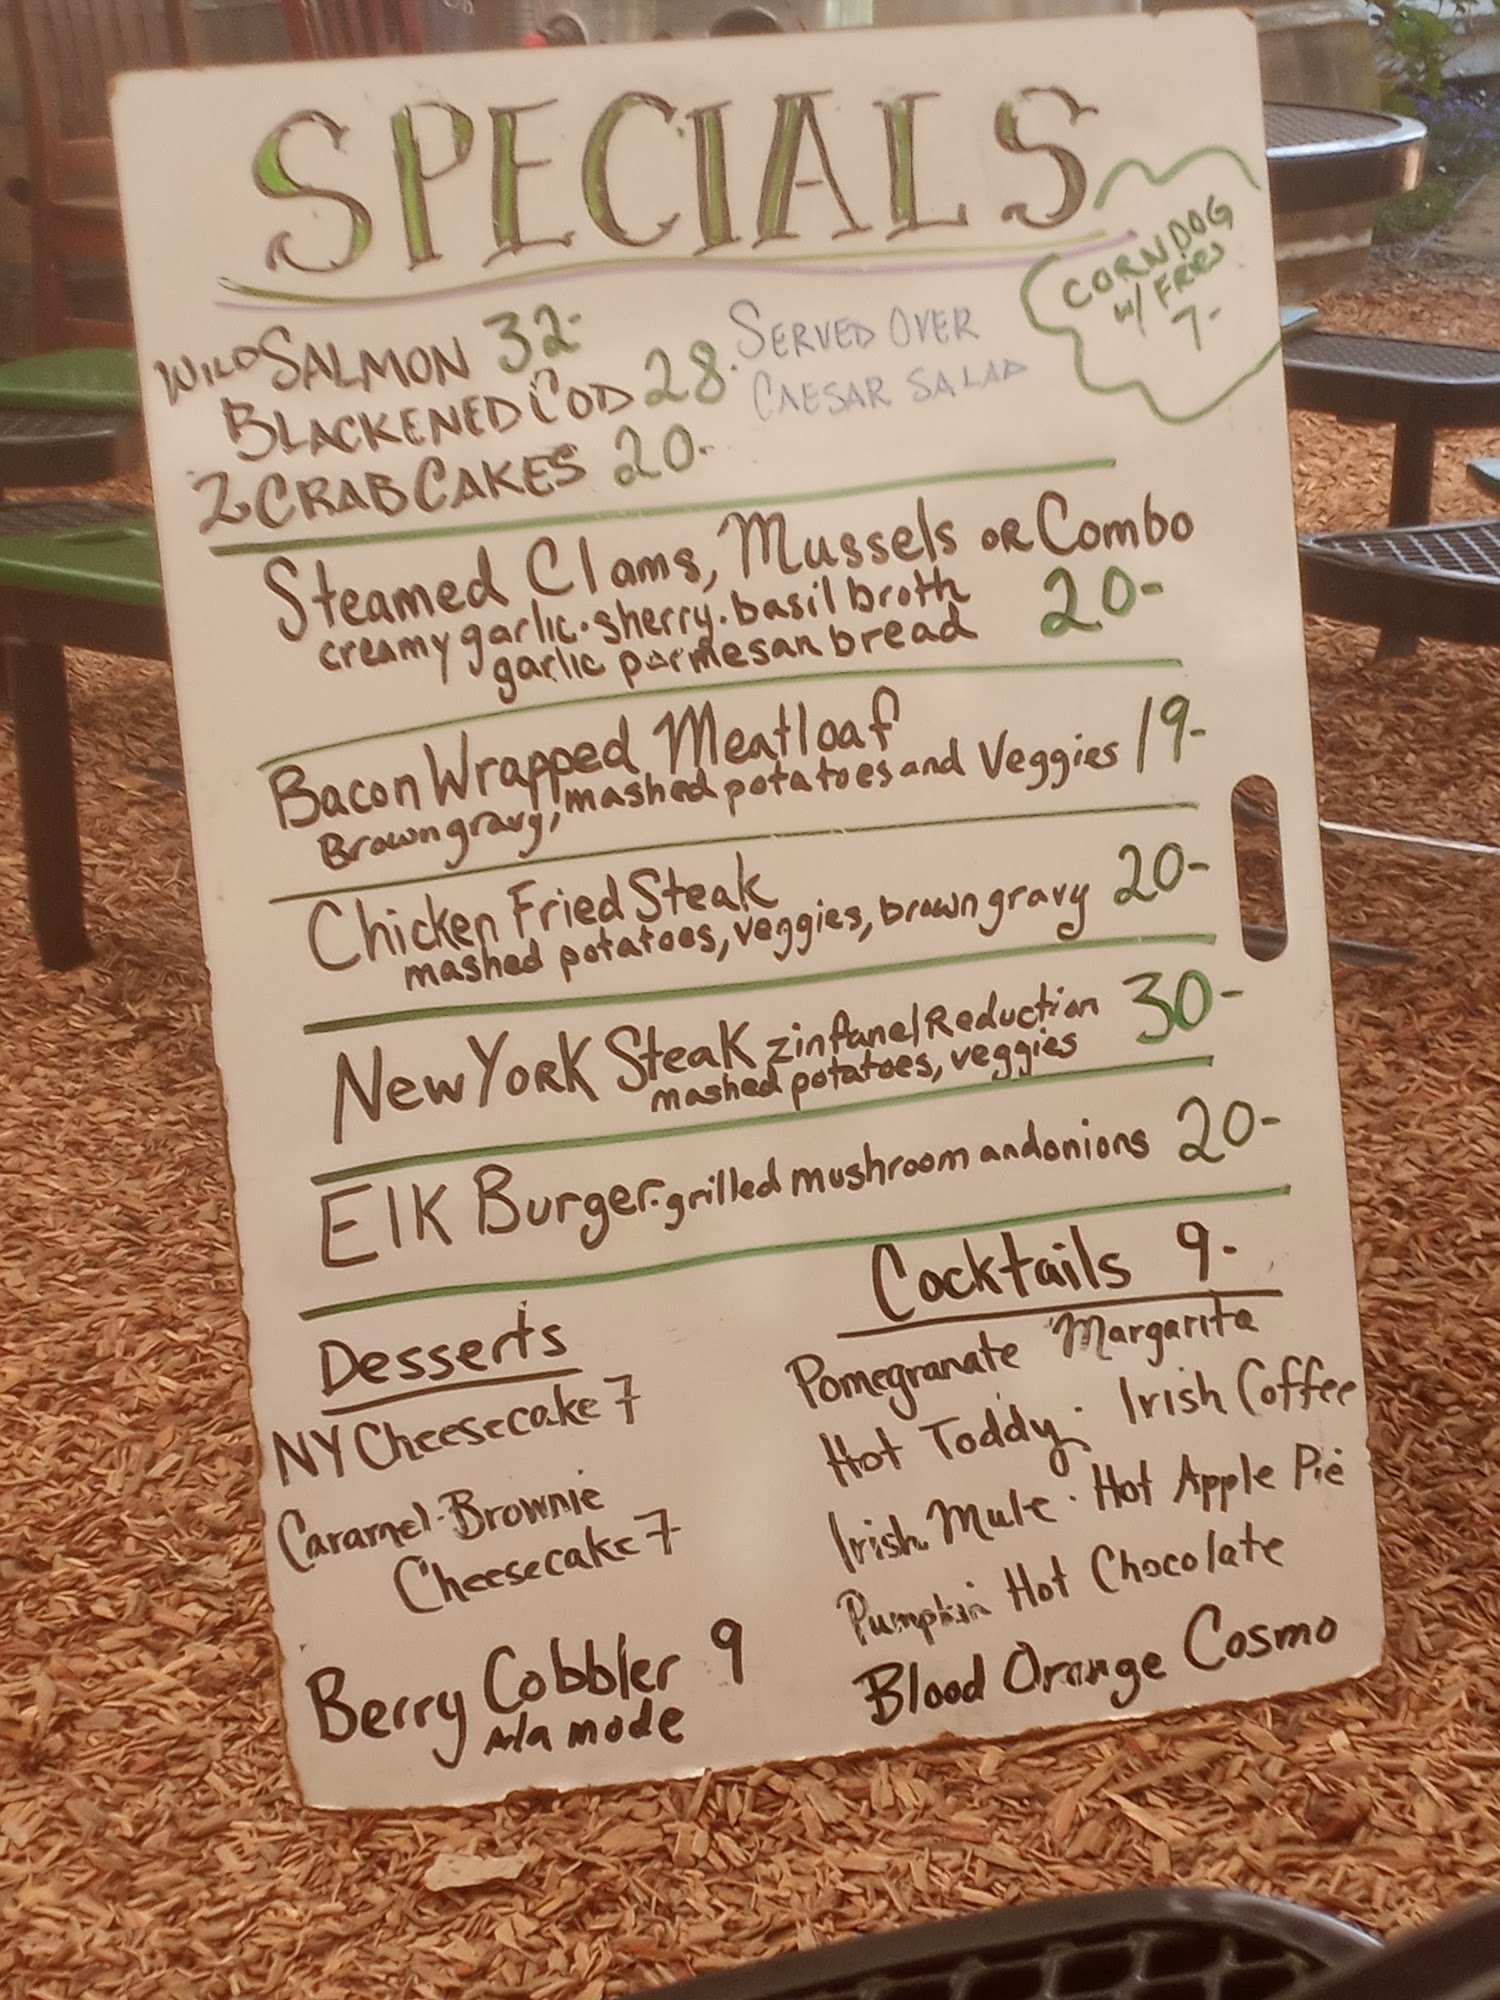 SPECIALS
CORN DOG
W/ FRIES
7-
WILD SALMON 32-
BLACKENED COD 28-
2 CRAB CAKES 20-
SERVED OVER
CAESAR SALAD
Steamed Clams, Mussels OR Combo
creamy garlic·sherry·basil broth
garlic parmesan bread 20-
Bacon Wrapped Meatloaf
Brown gravy, mashed potatoes and Veggies 19-
Chicken Fried Steak
mashed potatoes, veggies, brown gravy 20-
New York Steak zinfanel Reduction 30-
mashed potatoes, veggies
Elk Burger·grilled mushroom and onions 20-
Desserts
NY Cheesecake 7
Caramel·Brownie
Cheesecake 7
Berry Cobbler 9
A la mode
Cocktails 9-
Pomegranate Margarita
Hot Toddy · Irish Coffee
Irish Mule · Hot Apple Pie
Pumpkin Hot Chocolate
Blood Orange Cosmo